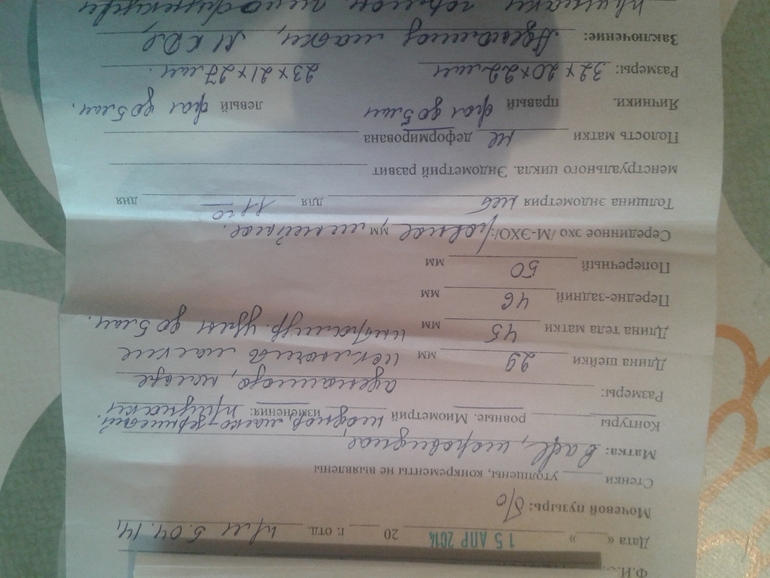 Ф.И.О.
Дата « » 15 АПР 2014 20 г. отд. 5.04.14
Мочевой пузырь: б/о
Стенки утолщены, конкременты не выявлены
Матка: в adfl, шаровидное
Контуры ровные. Миометрий неоднор. изменения: признаки
Размеры: аденомиоза, нельзя
Длина шейки 29 мм исключить мелкие
Длина тела матки 45 мм интрамур. узлы до 5 мм.
Передне-задний 46 мм
Поперечный 50 мм
Серединное эхо /М-ЭХО/: ровное, мм линейное.
Толщина эндометрия для 11 го дня
менструального цикла. Эндометрий развит
Полость матки не деформирована
Яичники. правый фол до 5 мм левый фол до 5 мм.
Размеры: 32 × 20 × 22 мм 23 × 21 × 27 мм.
Заключение: Аденомиоз матки, МКДЯ